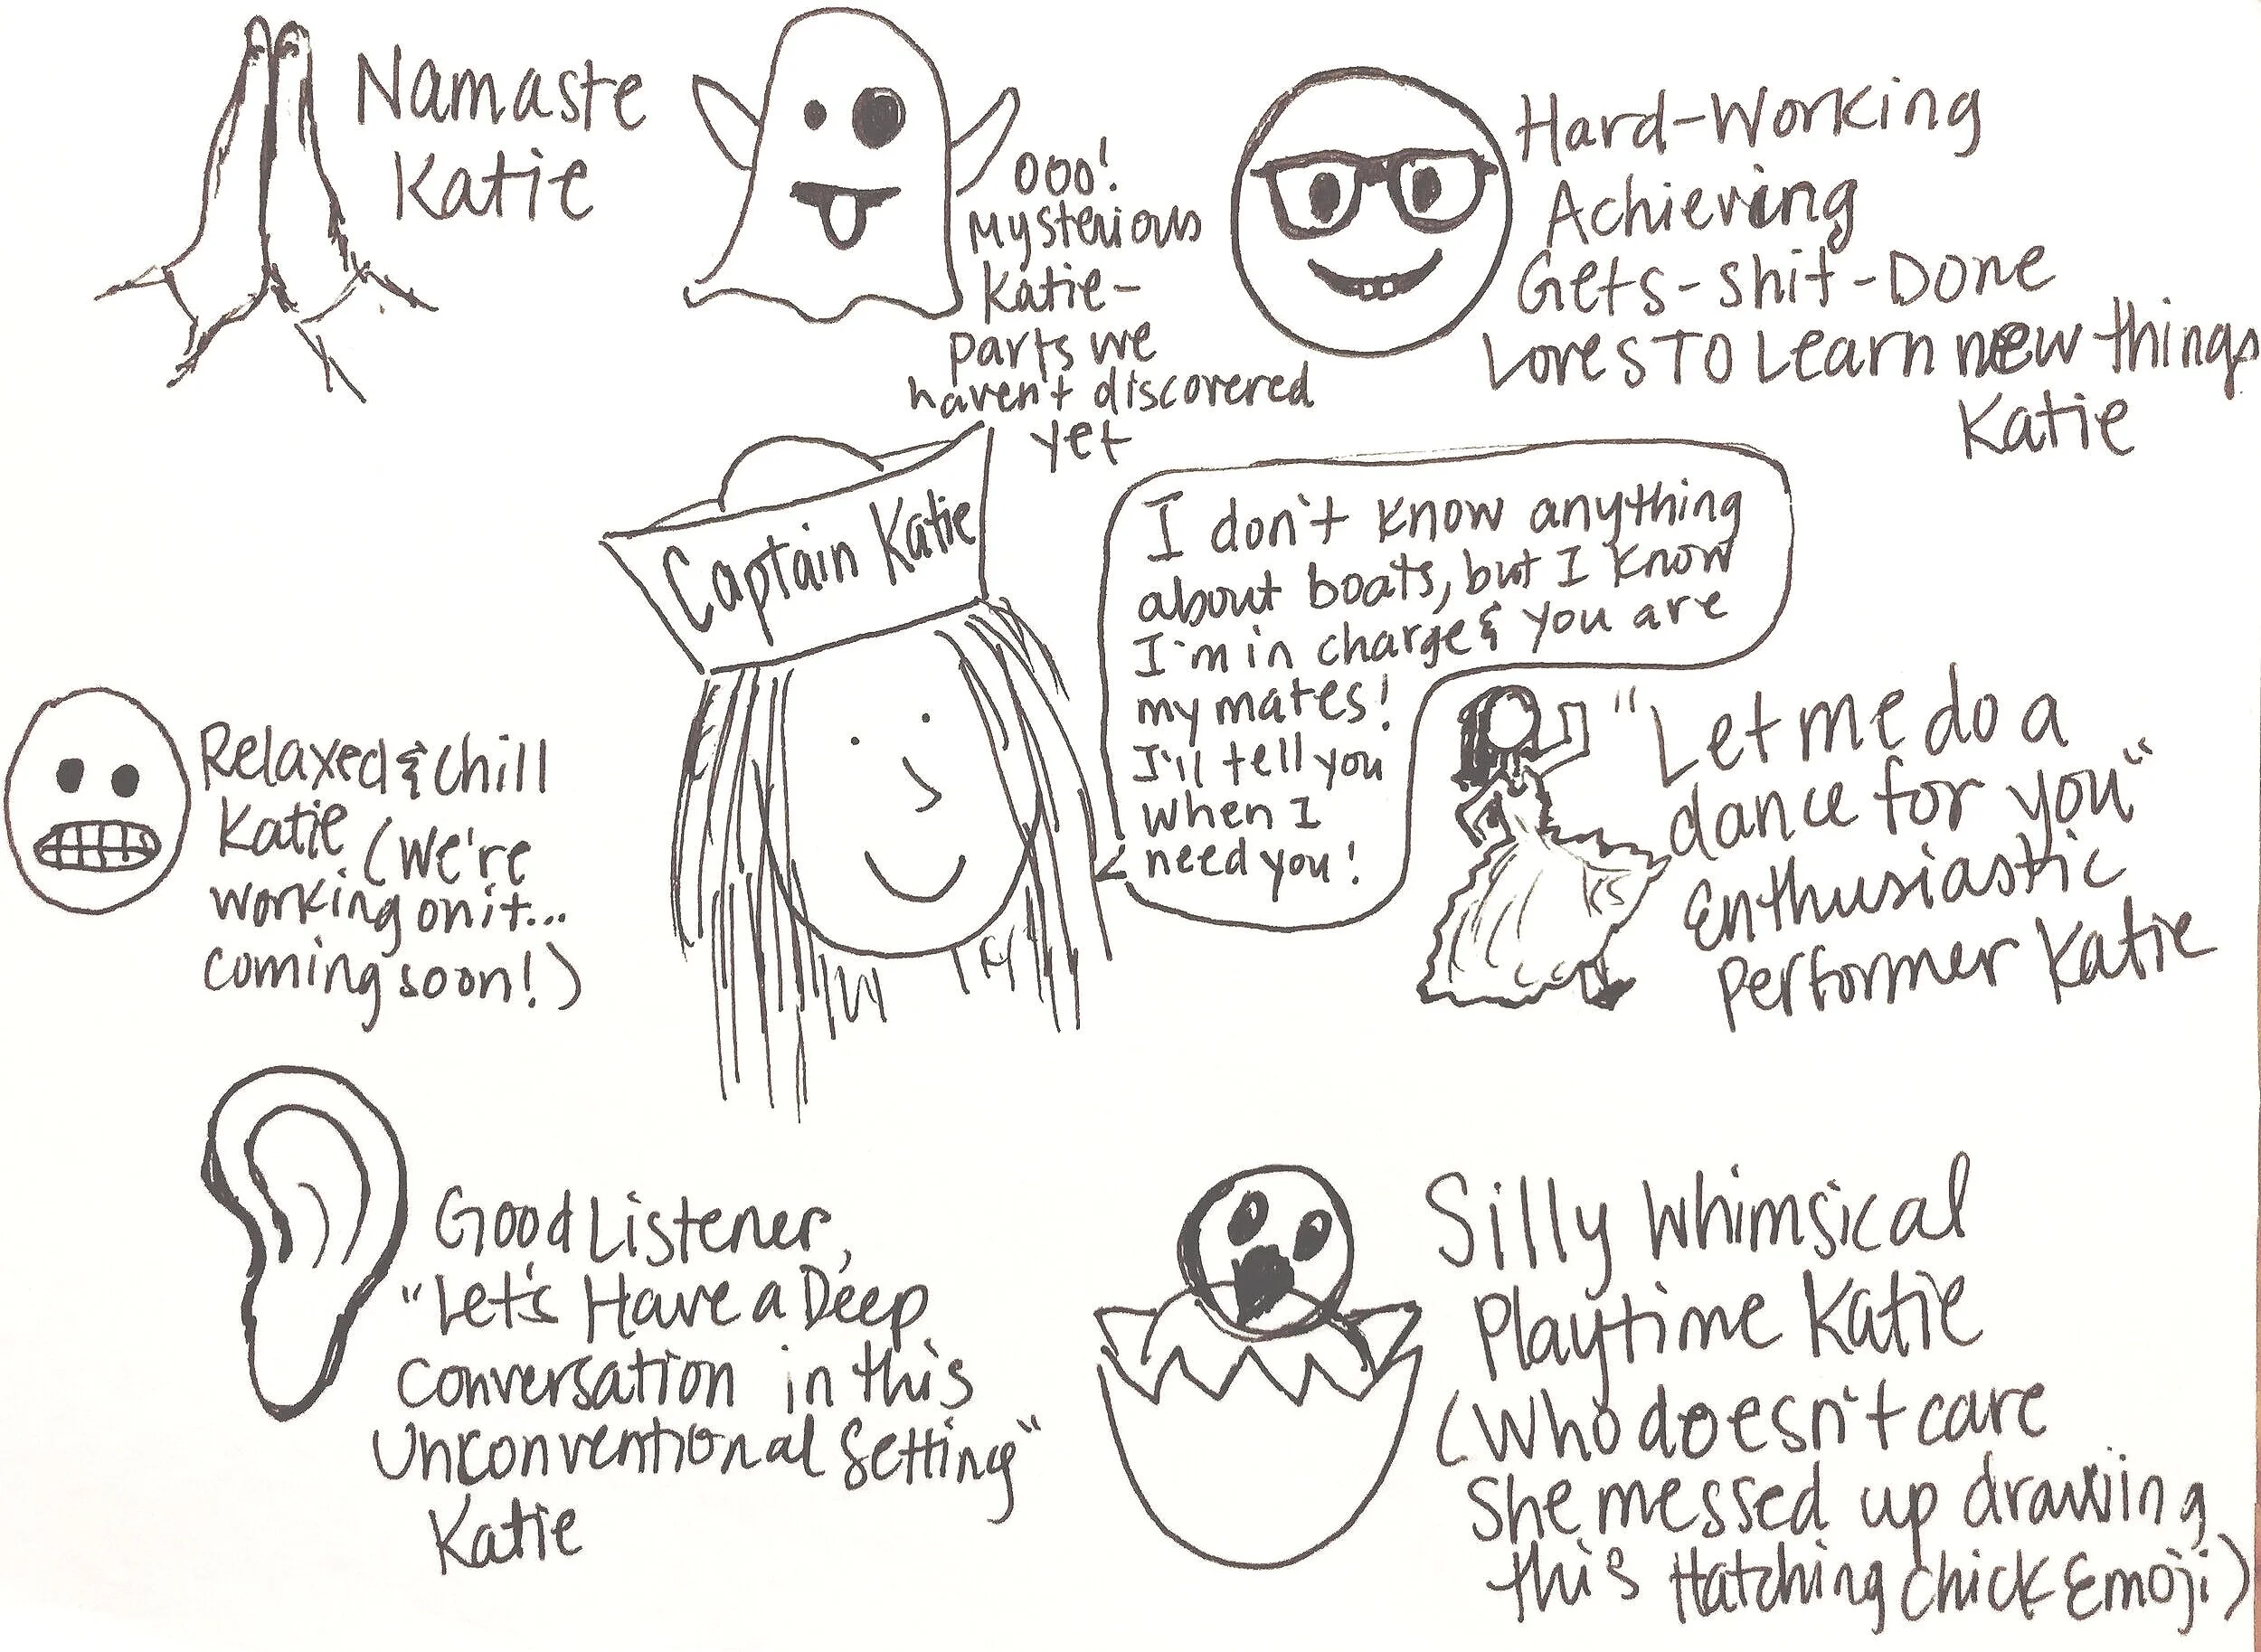 Namaste
Katie
ooo!
Mysterious
Katie-
parts we
haven't discovered
yet
Hard-Working
Achieving
Gets-shit-Done
Loves To Learn new things
Katie
Captain Katie
I don't know anything
about boats, but I know
I'm in charge & you are
my mates!
I'll tell you
when I
need you!
Relaxed & Chill
Katie (We're
working on it...
coming soon!)
"Let me do a
dance for you"
Enthusiastic
Performer Katie
Good Listener,
"Let's Have a Deep
Conversation in this
Unconventional Setting"
Katie
Silly Whimsical
Playtime Katie
(Who doesn't care
She messed up drawing
this Hatching Chick Emoji)